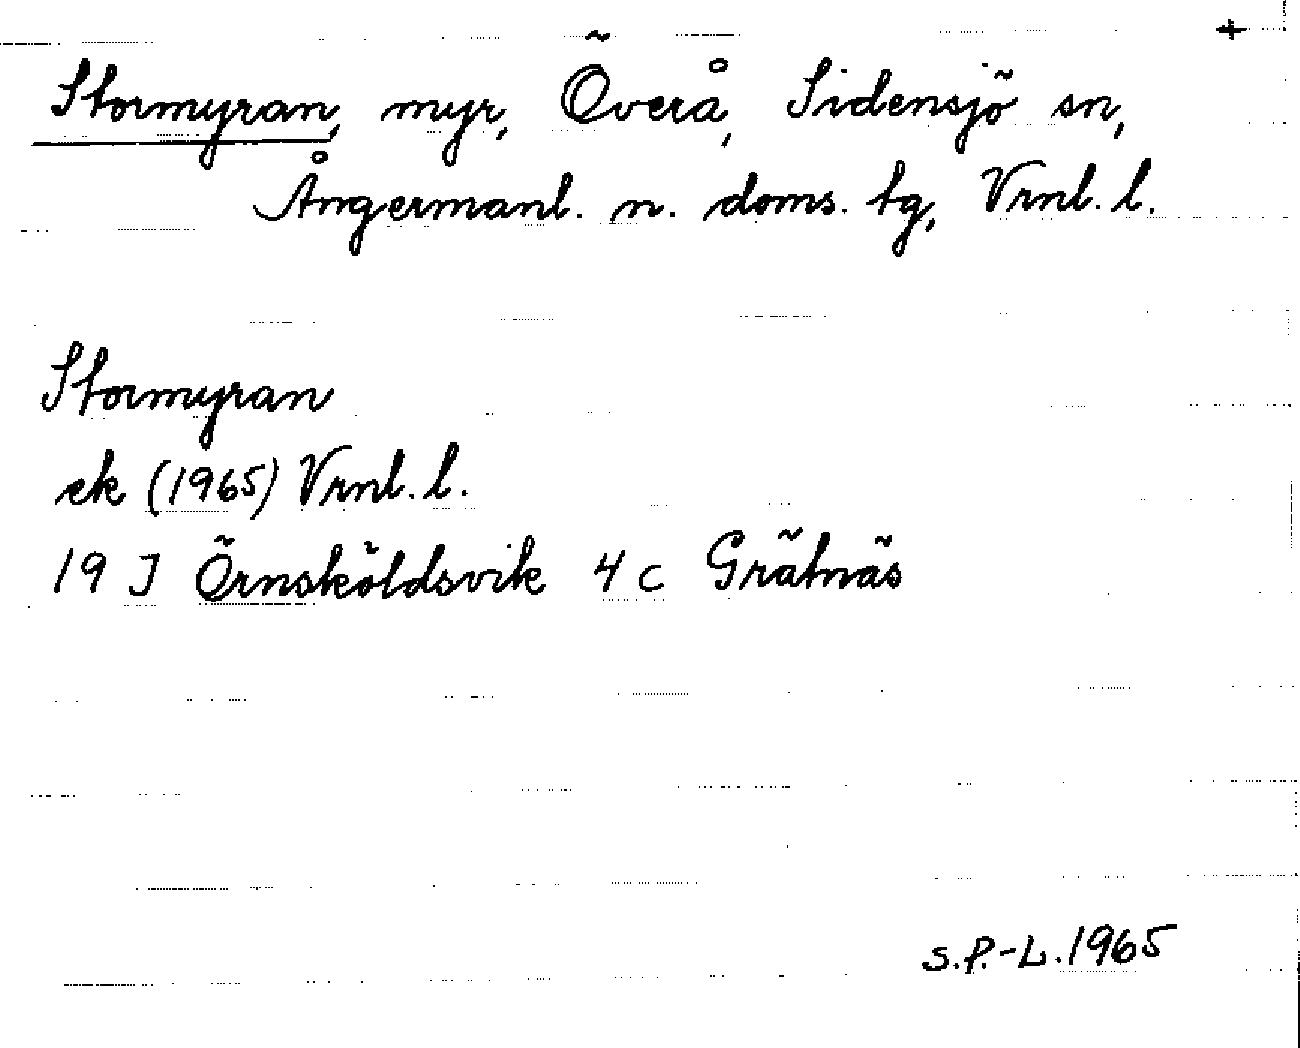 +
Stormyran, myr, Överå, Sidensjö sn,
Ångermanl. n. doms. tg, Vrnl. l.
Stormyran
ek (1965) Vrnl. l.
19 J Örnsköldsvik 4 c Grätnäs
S.P.-L. 1965